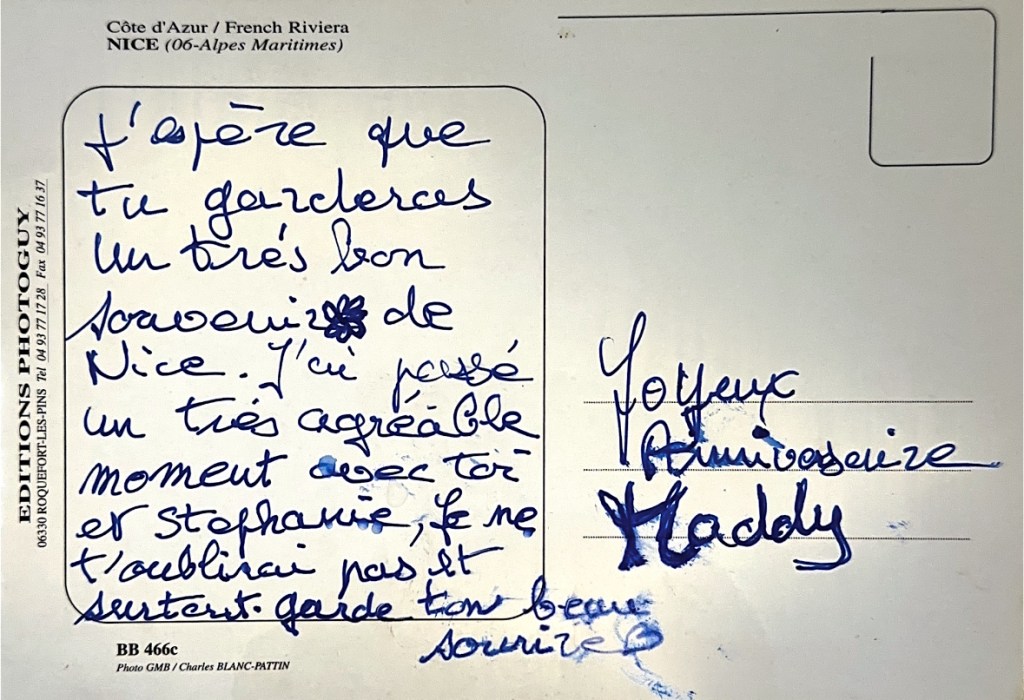 Côte d'Azur / French Riviera
NICE (06-Alpes Maritimes)
J'espère que
tu garderas
un trés bon
souvenir de
Nice. J'ai passé
un trés agréable
moment avec toi
et Stephanie, Je ne
t'oublirai pas et
surtout garde ton beau
sourire
Joyeux
Anniversaire
Maddy
EDITIONS PHOTOGUY
06330 ROQUEFORT-LES-PINS Tel 04 93 77 17 28 Fax 04 93 77 16 37
BB 466c
Photo GMB / Charles BLANC-PATTIN